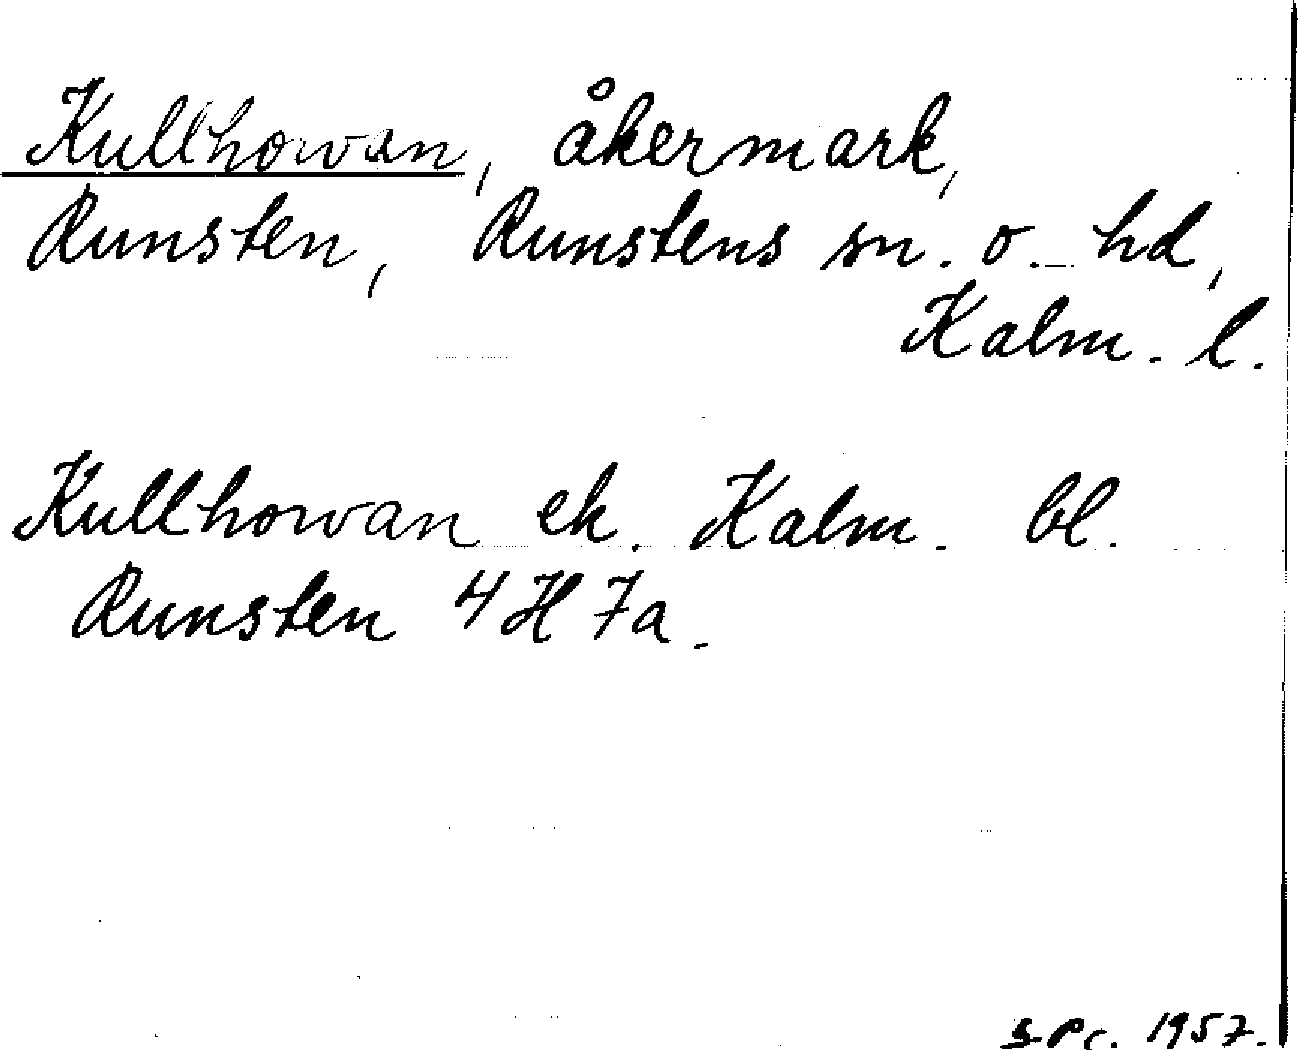 Kullhowan, åkermark,
Runsten, Runstens sn. o. hd,
Kalm. l.
Kullhowan ek. Kalm. bl.
Runsten 4 H 7a.
1957.